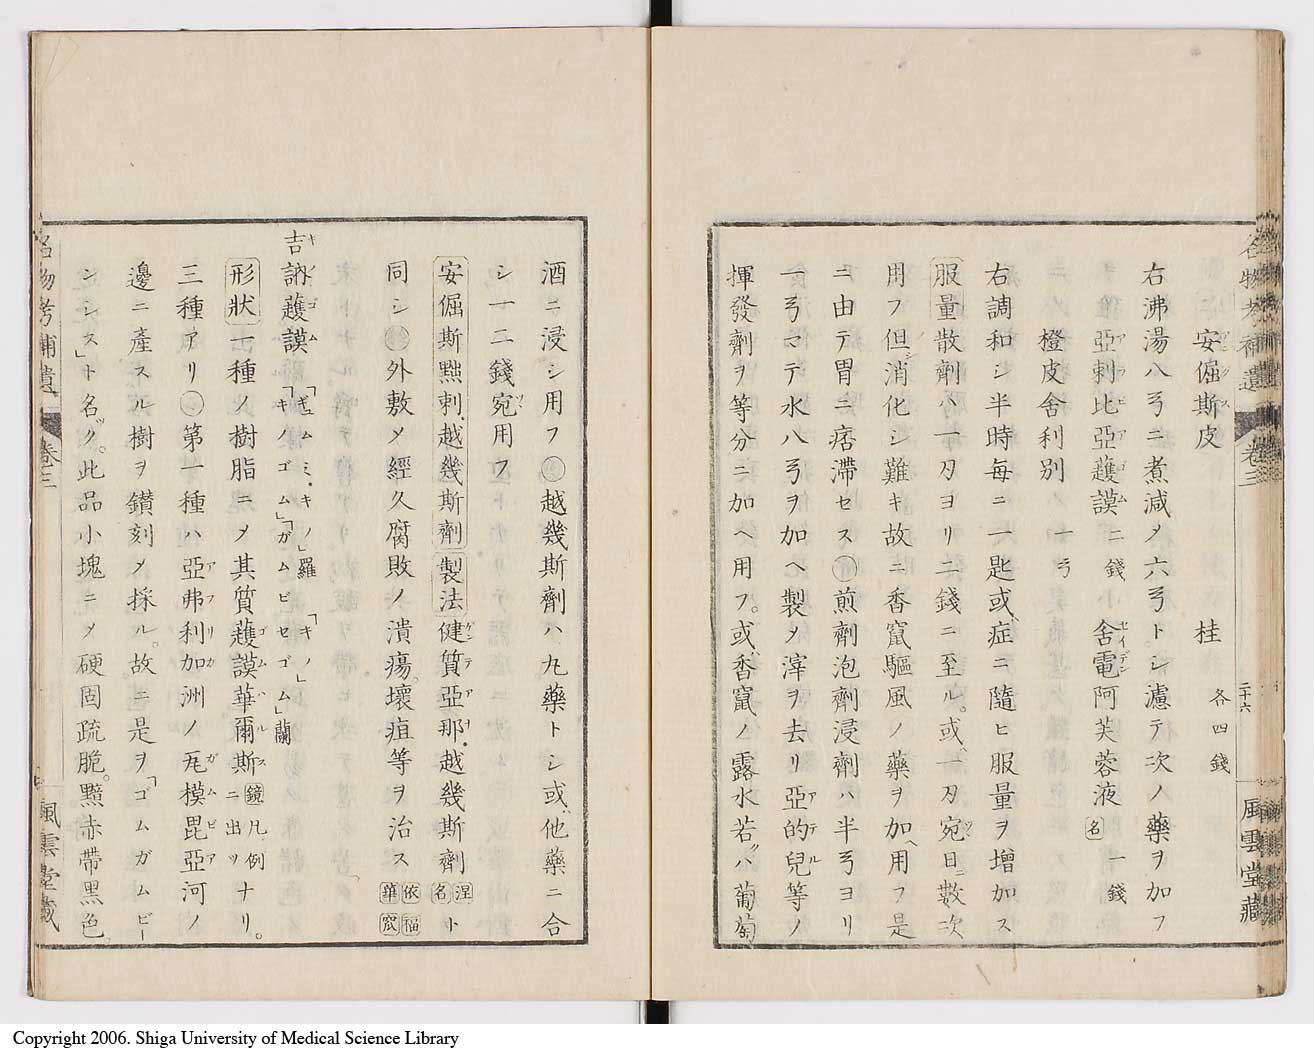 名物考補遺 卷三 二十六 風雲堂藏
安倔斯皮 桂 各四錢
右沸湯八弓ニ煮減メ六弓トシ濾テ次ノ藥ヲ加フ
亞刺比亞護謨二錢 舍電阿芙蓉液名一錢
橙皮舍利別 一弓
右調和シ半時每ニ一匙或ハ症ニ隨ヒ服量ヲ增加ス
服量散劑ハ一刄ヨリ二錢ニ至ル。或ハ一刄宛日ニ數次
用フ但シ消化シ難キ故ニ香竄驅風ノ藥ヲ加ヘ用フ是
ニ由テ胃ニ痞滯セス煎劑泡劑浸劑ハ半弓ヨリ
一弓マデ水八弓ヲ加ヘ製メ滓ヲ去リ亞的兒等ノ
揮發劑ヲ等分ニ加ヘ用フ。或ハ香竄ノ露水若クハ葡萄
酒ニ浸シ用フ越幾斯劑ハ丸藥トシ或ハ他藥ニ合
シ一二錢宛用フ
安倔斯㸃刺越幾斯劑製法健質亞那越幾斯劑涅名ト
同シ外敷メ經久腐敗ノ潰瘍。壞疽等ヲ治ス依福華窊
吉訥護謨「ギュムミ、キノ」羅「キノ」「キノゴム」「ガムビセゴム」蘭
形狀一種ノ樹脂ニメ其質護謨華爾斯ニ出ツ鏡凡例ナリ。
三種アリ第一種ハ亞弗利加洲ノ瓦模毘亞河ノ
邊ニ產スル樹ヲ鑚刻メ採ル。故ニ是ヲ「ゴムガムビー
シンス」ト名ツク。此品小塊ニメ硬固疏脆。黯赤帶黑色
名物考補遺 卷三 風雲堂藏
Copyright 2006. Shiga University of Medical Science Library